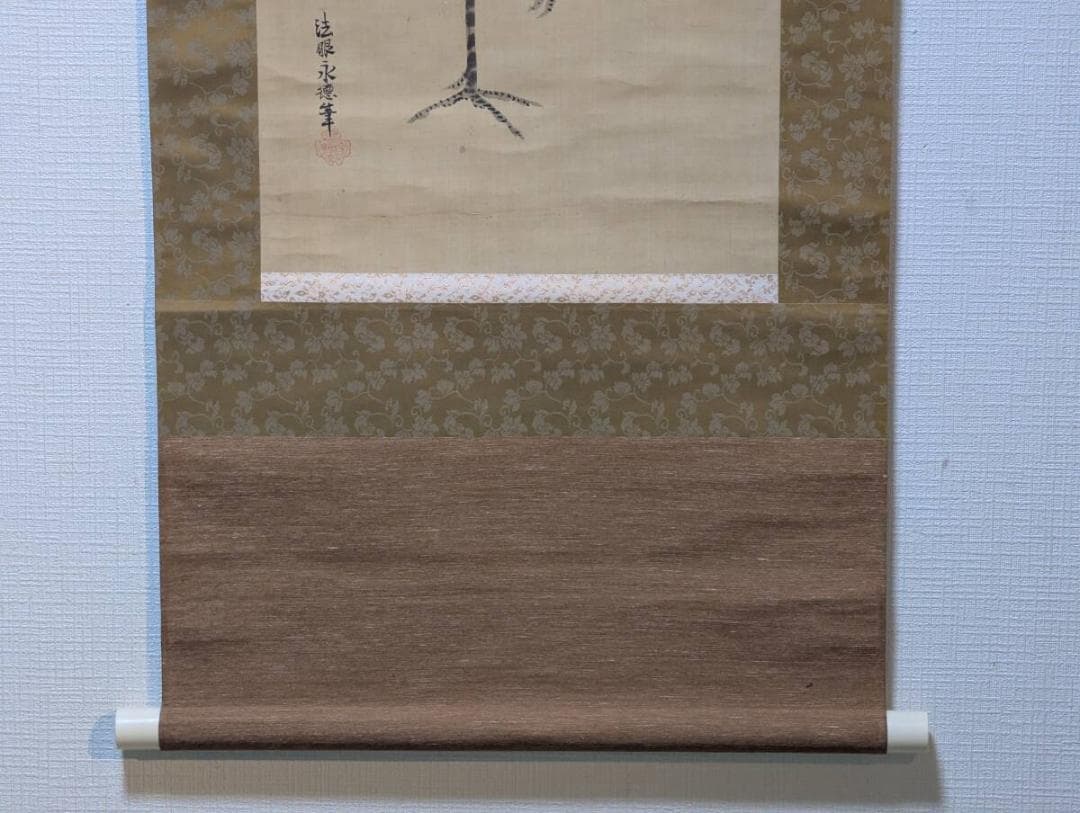 法眼永徳筆